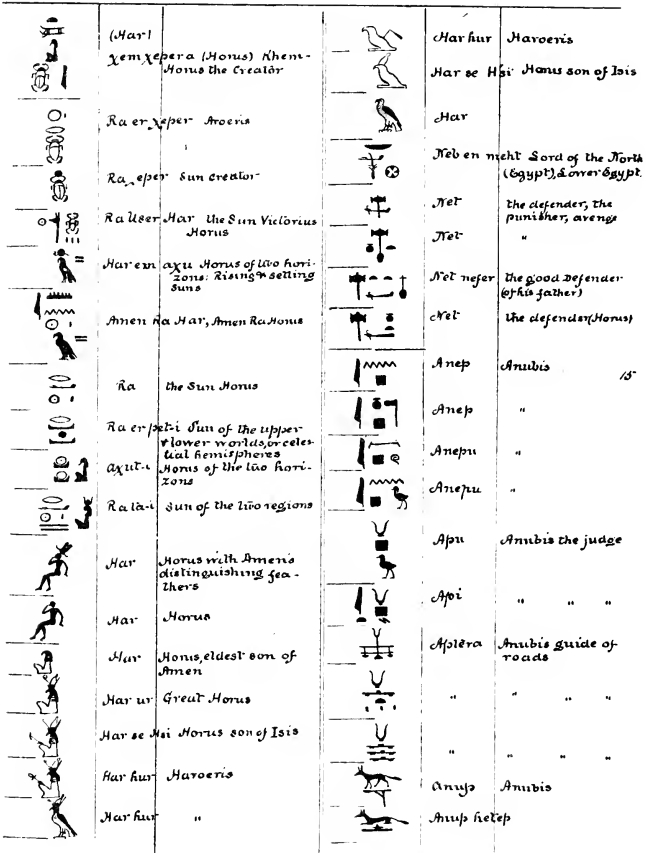 (Har)
χem χepera (Horus) Khem-
Horus the Creator
Ra er χeper Aroeris
Ra χeper Sun creator
Ra User Har the Sun Victorius
Horus
Har em aχu Horus of two hori-
zons: Rising & setting
suns
Amen Ra Har, Amen Ra Horus
Ra the Sun Horus
Ra er pet-i Sun of the upper
& lower worlds, or celes-
tial hemispheres
aχut-i Horus of the two hori-
zons
Ra ta-i Sun of the two regions
Har Horus with Amen's
distinguishing fea-
thers
Har Horus
Har Horus, eldest son of
Amen
Har ur Great Horus
Har se Hsi Horus son of Isis
Har hur Haroeris
Har hur "
Har hur Haroeris
Har se Hsi Horus son of Isis
Har
Neb en meht Lord of the North
(Egypt), Lower Egypt.
Net the defender, the
punisher, avenge
Net "
Net nefer the good Defender
(of his father)
Net the defender (Horus)
Anep Anubis
15
Anep "
Anepu "
Anepu "
Apu Anubis the judge
Api " " "
Aptera Anubis guide of
roads
" " " "
" " " "
Anup Anubis
Anup hetep